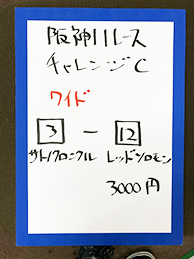 阪神11レース
チャレンジC
ワイド
3 ー 12
サトノクロニクル レッドソロモン
3000円